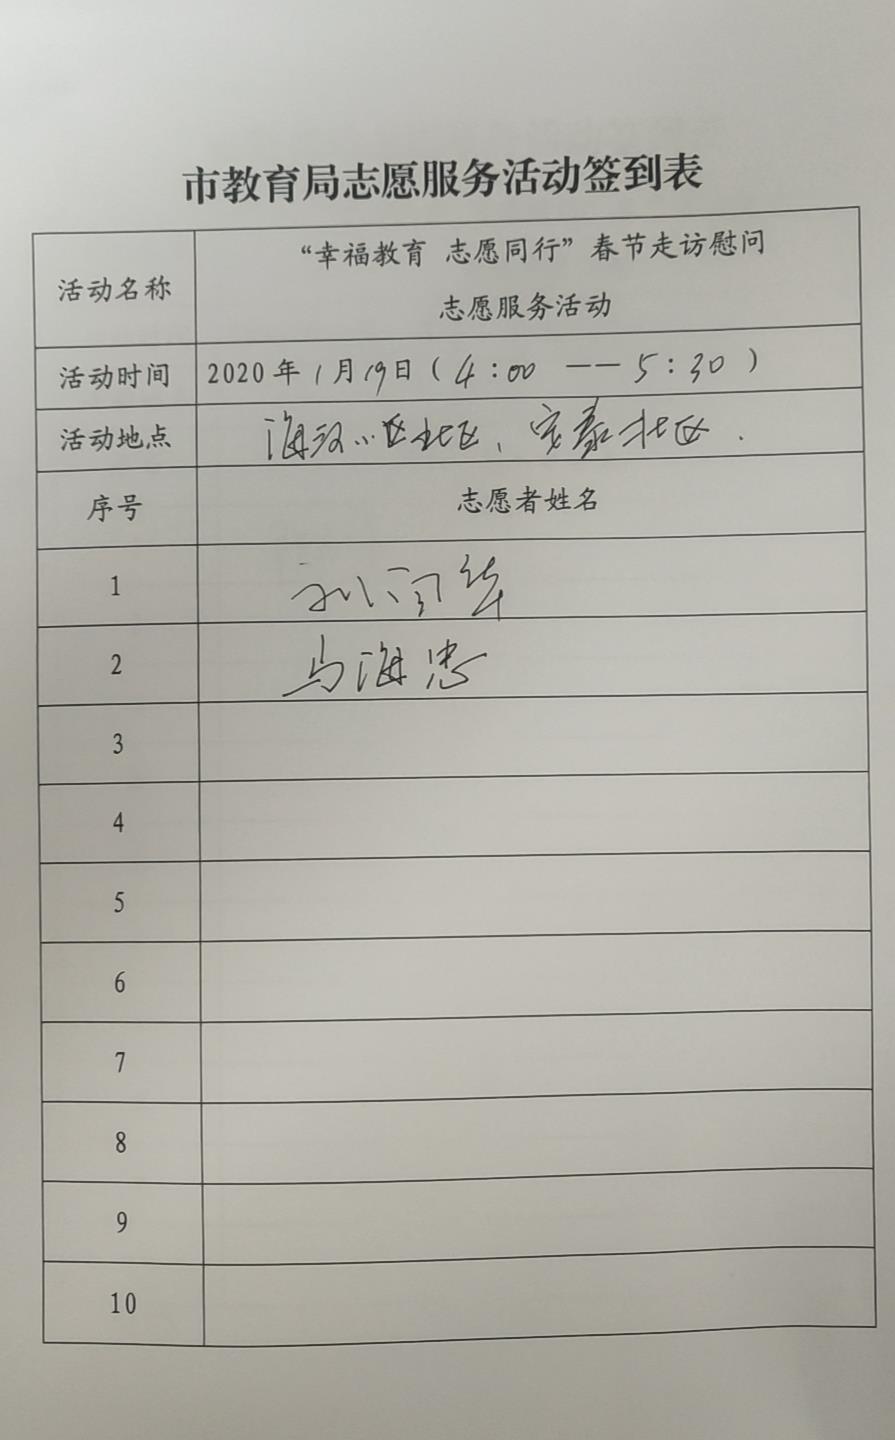 市教育局志愿服务活动签到表
活动名称
“幸福教育 志愿同行”春节走访慰问
志愿服务活动
活动时间 2020年1月19日(4:00 —— 5:30)
活动地点 海汉小区北区、安泰北区.
序号 志愿者姓名
1
2 马海忠
3
4
5
6
7
8
9
10